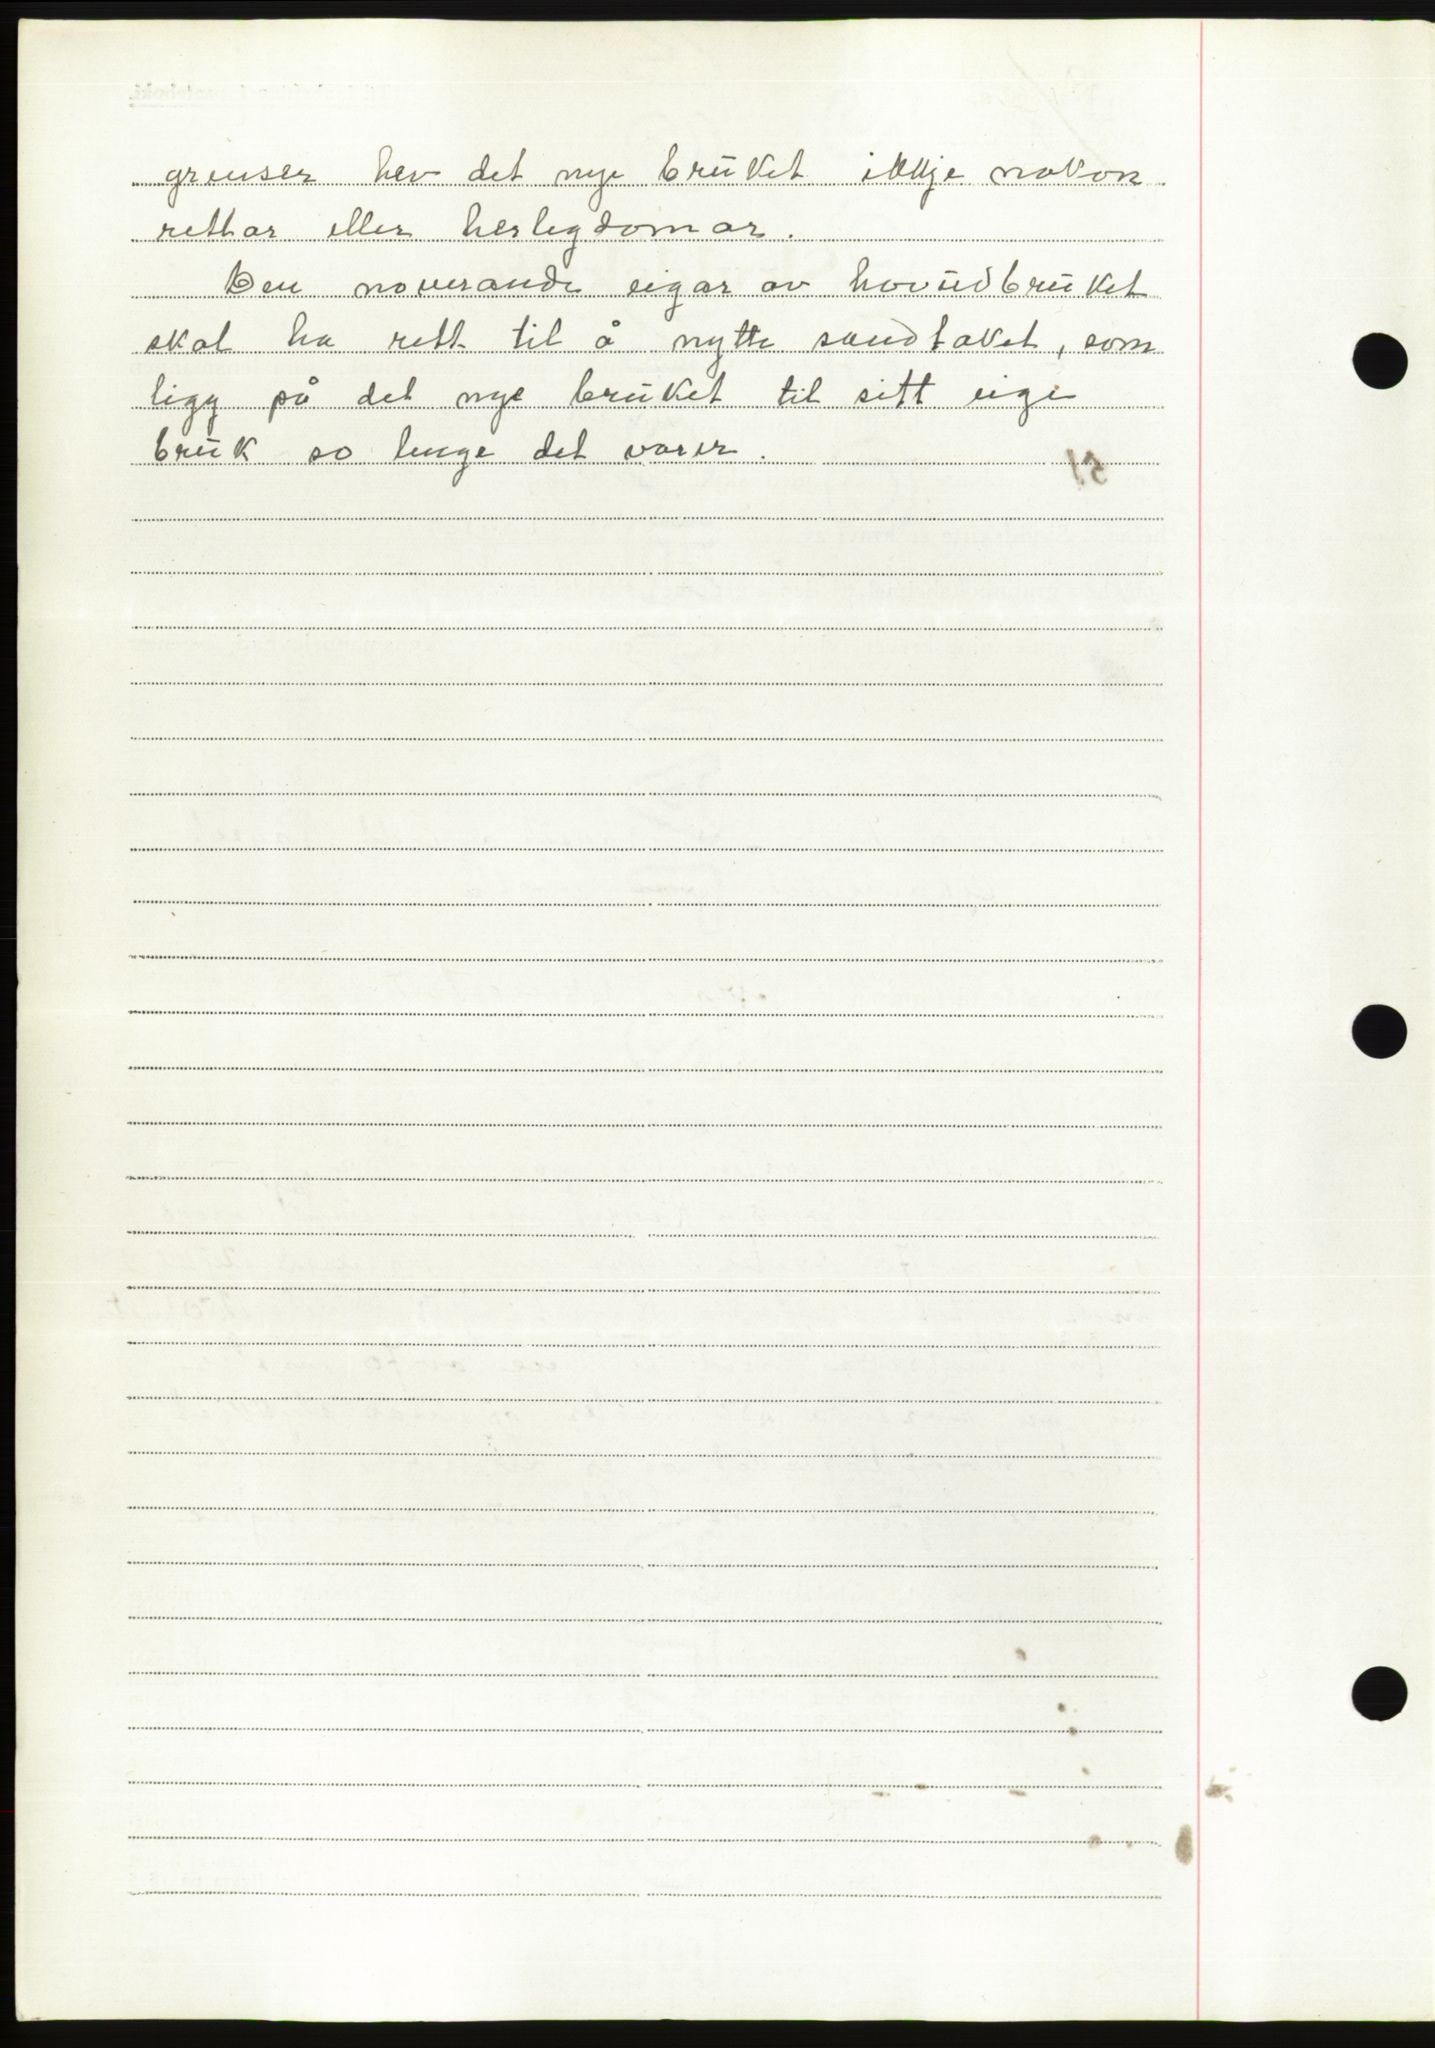 grenser hev det nye bruket ikkje nokon
rettar eller herlegdomar.
Den noverande eigar av hovudbruket
skal ha rett til å nytte sandtaket, som
ligg på det nye bruket til sitt eige
bruk so lenge det varer.